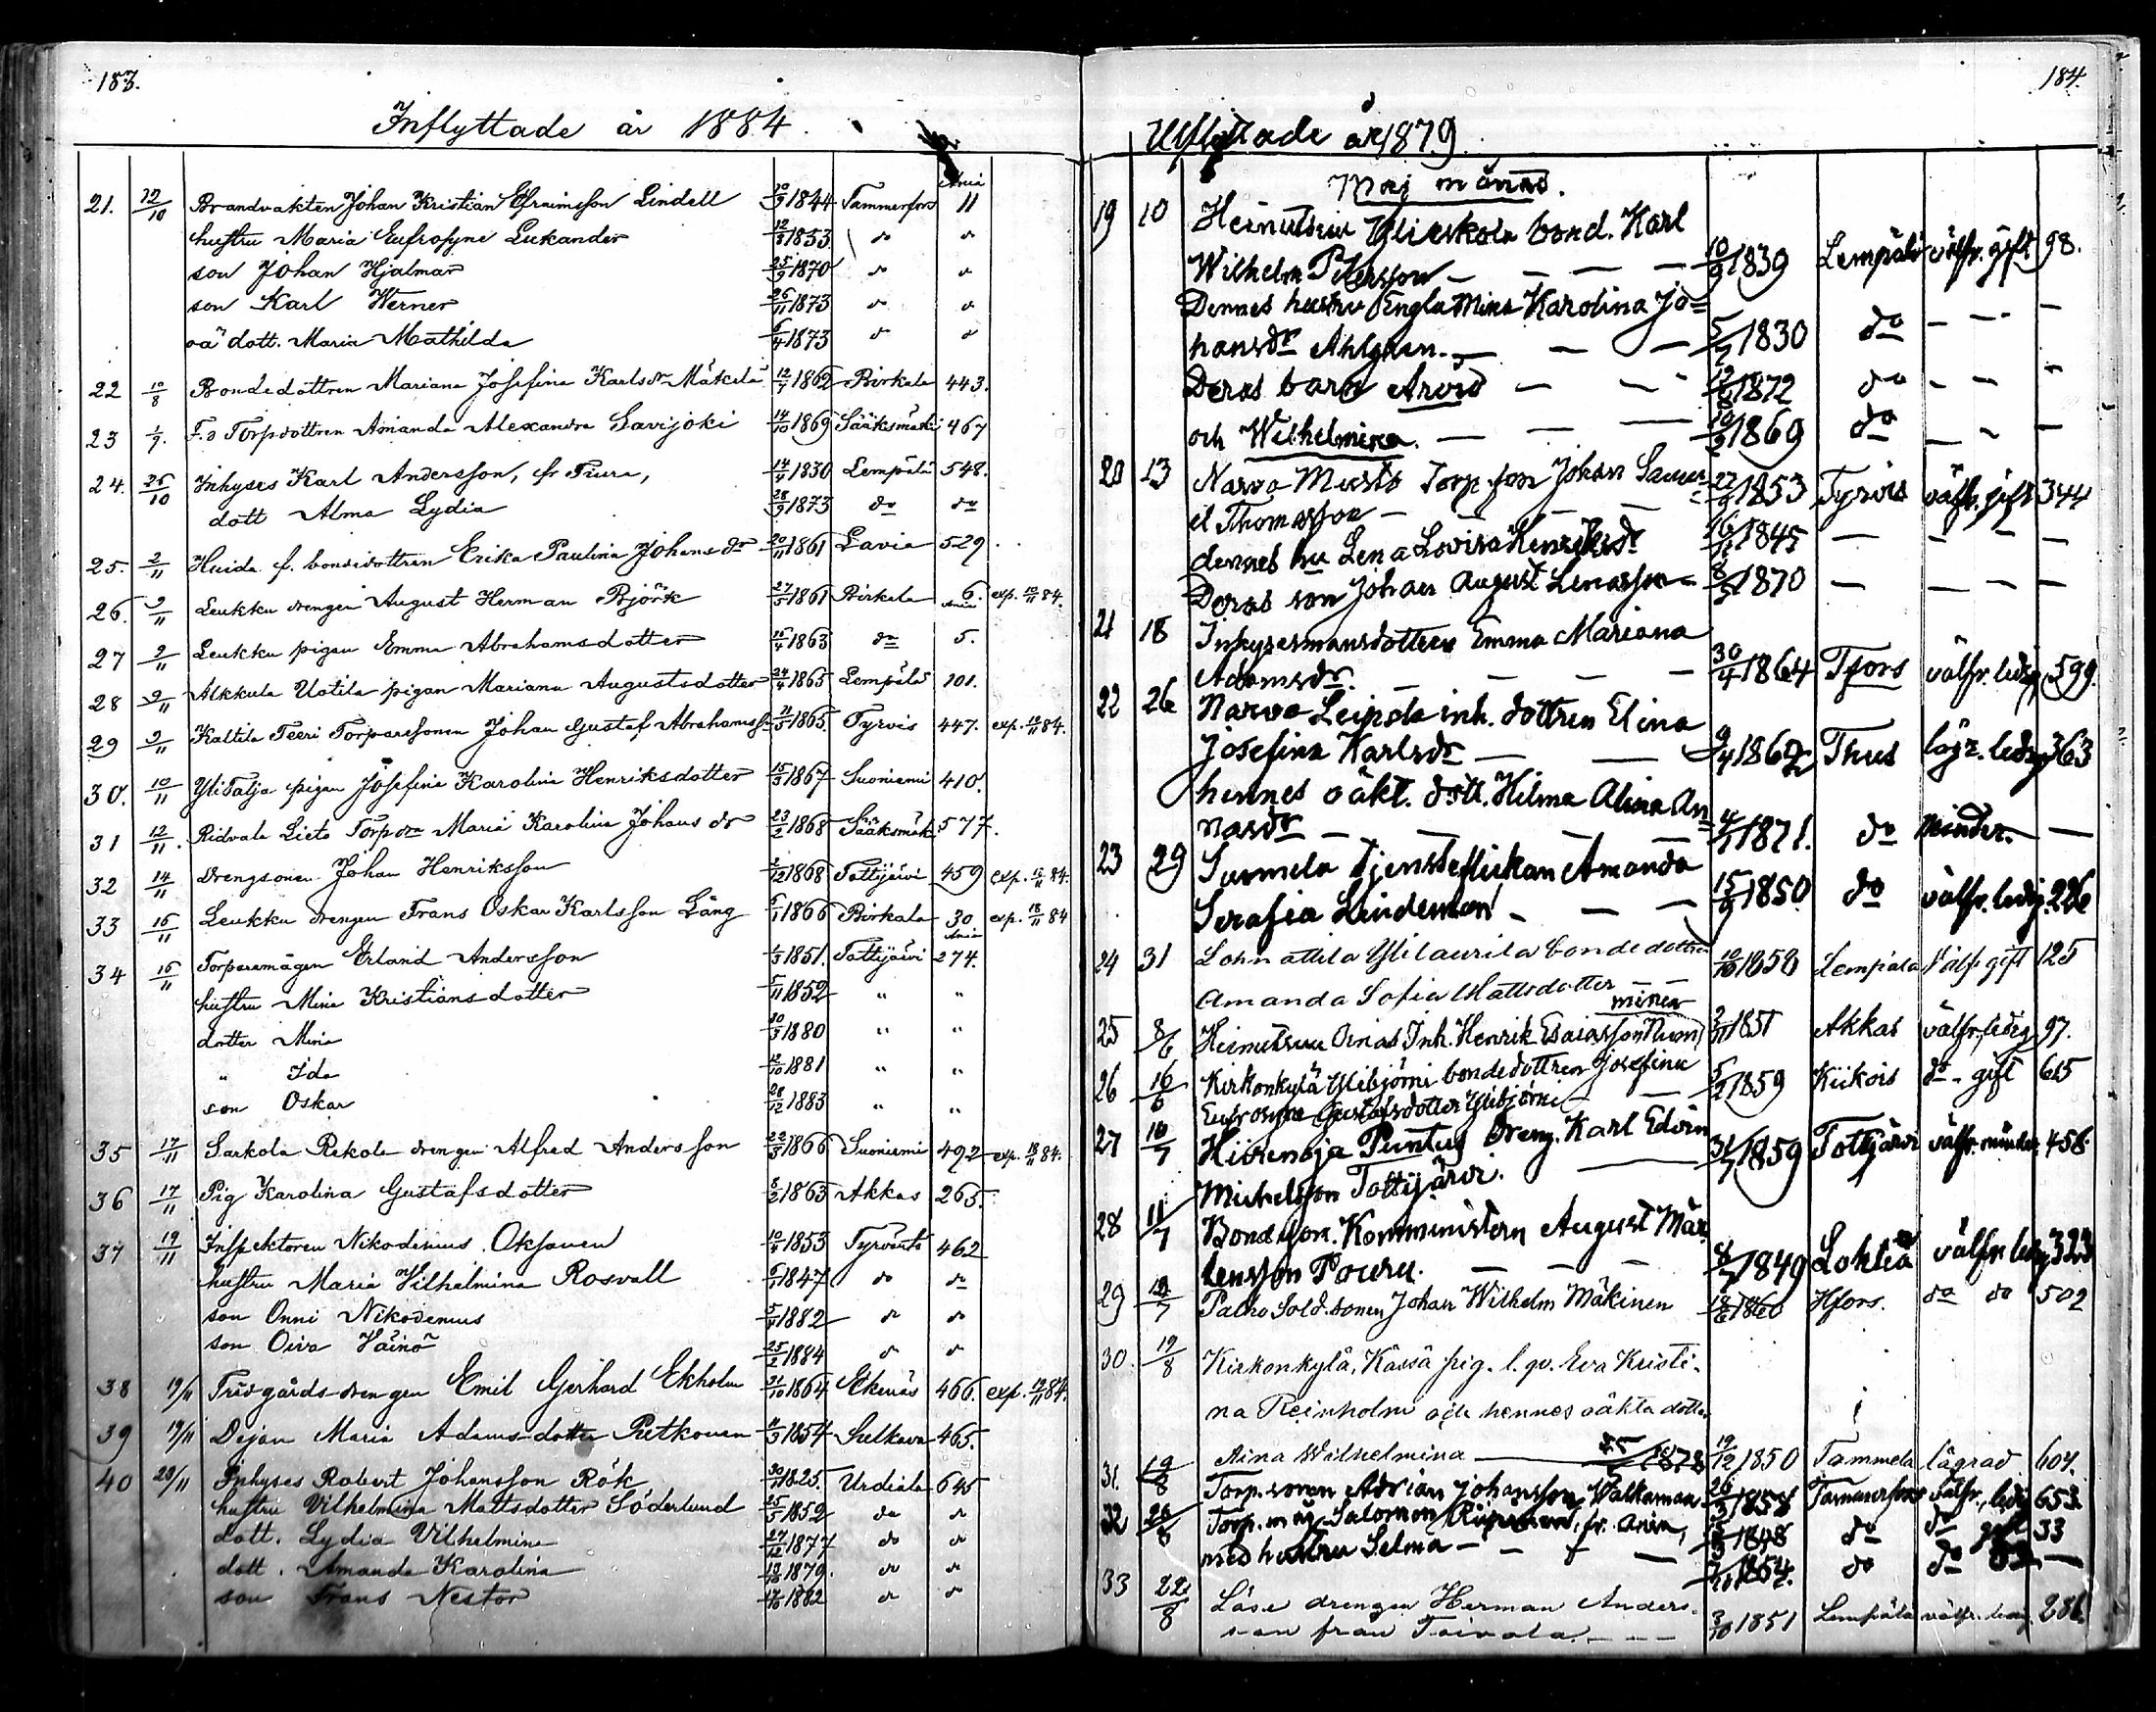 183.
Inflyttade år 1884.
Ania
21. 12/10 Brandvakten Johan Kristian Efraimsson Lindell 30/9 1844 Tammerfors 11
hustru Maria Eufrosyne Lukander 12/8 1853 do do
son Johan Hjalmar 25/9 1870 do do
son Karl Werner 26/11 1873 do do
oä dott. Maria Mathilda 6/4 1873 do do
22 10/8 Bondedottren Mariana Josefina Karlsdr Mäkelä 12/7 1862 Birkala 443.
23 1/9. F.d Torpdottren Amanda Alexandra Savijoki 14/10 1869 Sääksmäki 467
24. 26/10 Inhyses Karl Andersson, fr 14/4 1830 Lempälä 548.
dott Alma Lydia 28/9 1873 do do
25. 2/11 Huida f. bondedottren Erika Paulina Johansdr 20/11 1861 Lavia 529
26. 9/11 Leukku drengen August Herman Björk 27/5 1861 Birkala 6. Ania exp. 10/11 84.
27 9/11 Leukku pigan Emma Abrahamsdotter 16/4 1863 do 5.
28 9/11 Alkkula Uotila pigan Mariana Augustsdotter 24/4 1865 Lempälä 101.
29 9/11 Kaltila Teeri Torparesonen Johan Gustaf Abrahamsson 21/5 1865. Tyrvis 447. exp. 10/11 84.
30. 10/11 YliTalja pigan Josefina Karolina Henriksdotter 15/3 1867 Suoniemi 410.
31 12/11. Ridvala Lieto Torpdr Maria Karolina Johansdr 23/2 1868 Sääksmäki 577.
32 14/11 Drengsonen Johan Henriksson 1/12 1868 Tottijärvi 459 exp. 15/11 84.
33 16/11 Leukku drengen Frans Oskar Karlsson Lång 6/1 1866 Birkala 30 Ania exp. 18/11 84
34 16/11 Torparemågen Erland Andersson 1/3 1851. Tottijärvi 274.
hustru Mina Kristiansdotter 5/11 1852 " "
dotter Mina 30/3 1880 " "
" Ida 12/10 1881 " "
son Oskar 28/12 1883 " "
35 17/11 Sarkola Pekola drengen Alfred Andersson 22/3 1866 Suoniemi 492 exp. 18/11 84.
36 17/11 Pig Karolina Gustafsdotter 8/2 1863 Akkas 265.
37 19/11 Inspektoren Nikodemus Oksanen 10/4 1853 Tyrvänto 462
hustru Maria Vilhelmina Rosvall 6/1 1847 do do
son Onni Nikodemus 5/4 1882 do do
son Oiva Väinö 25/2 1884 do do
38 19/11 Trädgårdsdrengen Emil Gerhard Ekholm 31/10 1864 Ekenäs 466. exp. 19/11 84.
39 19/11 Dejan Maria Adamsdotter Pietkonen 11/3 1854 Sulkava 465.
40 29/11 Inhyses Robert Johansson Rök 30/11 1825. Urdiala 645
hustru Vilhelmina Mattsdotter Söderlund 25/5 1852 do do
dott. Lydia Vilhelmina 27/12 1877 do do
dott. Amanda Karolina 19/10 1879. do do
son Frans Nestor 17/10 1882 do do
184.
Utflyttade år 1879.
Maj månad.
19 10 Heinutsuu Yli bond. Karl
Wilhelm Petersson — 10/9 1839 Lempälä välfr. gift 98.
Dennes hustru Engla Mina Karolina Jo=
hansdr Ahlgren. — 5/7 1830 do — —
Deras barn Arvid — 12/8 1872 do — —
och Wilhelmina. — 10/2 1869 do — —
20 13 Narva Musto Torp.son Johan Samu=
el Thomasson — 27/9 1853 Tyrvis välfr. gift 344
dennes hu Lena Lovisa Henriksdr 16/11 1845 — — —
Deras son Johan August Lenasson 8/3 1870 — — —
21 18 Inhysesmansdottren Emma Mariana
Adamsdr. — 30/4 1864 Tfors välfr. ledig 599.
22 26 Narva Leipola inh. dottren Elina
Josefina Karlsdr — 9/4 1862 Thus lägr. ledig 363
hennes oäkt. dott. Hilma Alina An=
nasdr — 4/7 1871. do minder. —
23 29 Surmela Tjensteflickan Amanda
Serafia Lindeman — 15/9 1850 do välfr. ledig. 226
24 31 Lohnattila Ylilaurila bondedottren
Amanda Sofia Mattsdotter — 10/10 1850 Lempälä välfr gift 125
25 8/6 Heinutsuu Ainas Inh. Henrik Esaiasson Numminen 2/11 1851 Akkas välfr. ledig 97.
26 16/6 Kirkonkylä Ylibjörni bondedottren Josefina
Eufrosyna Gustafsdotter Ylibjörni — 5/2 1859 Kiikois do. gift 615
27 10/7 Hiirenoja Puntus Dreng. Karl Edvin
Michelsson Tottijärvi. — 31/7 1859 Tottijärvi välfr. 458
28 11/7 Bondeson. Kommunistern August Mår
tensson Pouru. — 8/7 1849 Lohteå välfr. ledig 323
29 12/7 Palho Sold.sonen Johan Wilhelm Mäkinen 18/6 1860 Hfors. do do 502
30. 19/8 Kirkonkylä, Kässä pig. l. qv. Eva Kristi-
na Reinholm och hennes oäkta dotter
Aina Wilhelmina — 1878 19/12 1850 Tammela lägrad 604.
31. 19/8 Torp.sonen Adrian Johansson Walkaman 26/3 1858 Tammerfors välfr., ledig 653
32 20/8 Torp. måg Salomon fr. Ania, 1848 do do gift 33
med hustru Selma — 1854. do do —
33 22/8 Läse drengen Herman Anders-
son från Toivola. — 3/10 1851 Lempälä välfr. ledig 286